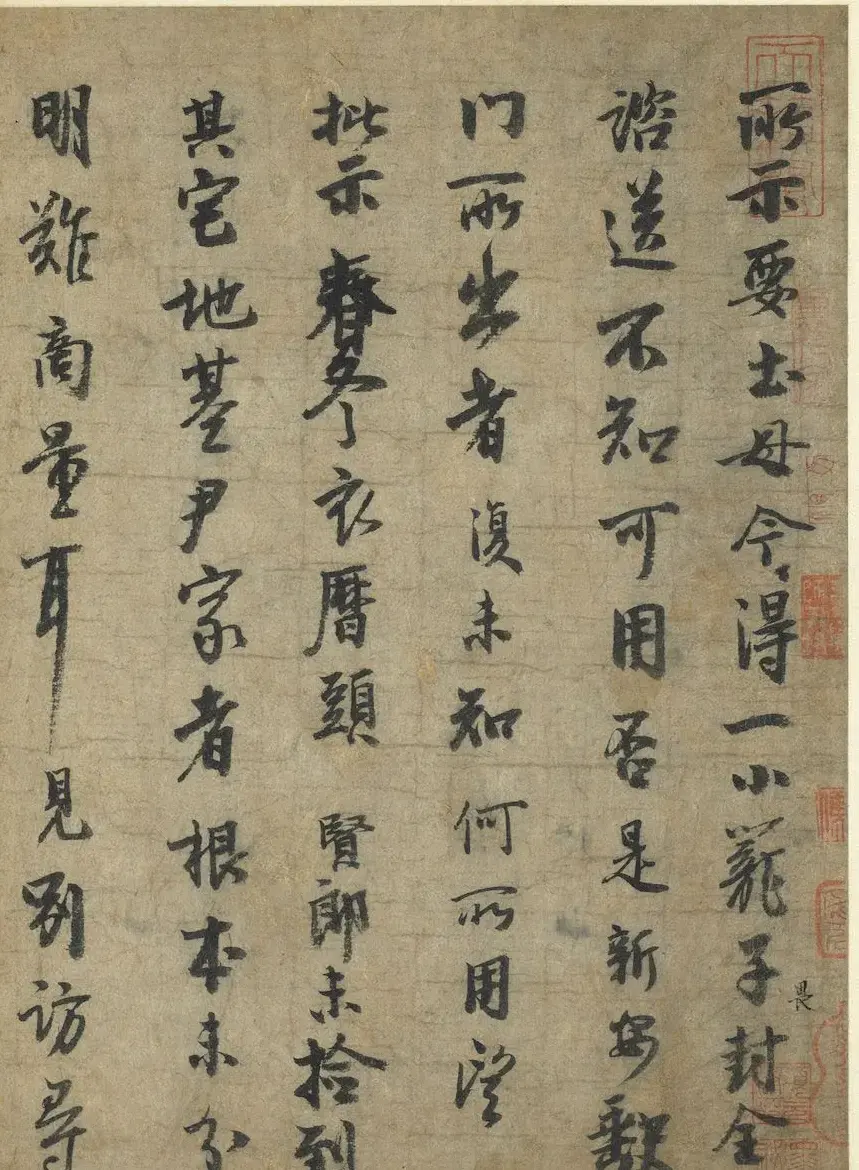 所示要土母今得一小籠子封全
畏
諮送不知可用否是新安缺
门所出者復未知何所用望
批示春冬衣曆頭賢郎未拾到
其宅地基尹家者根本未分
明難商量耳見別訪尋